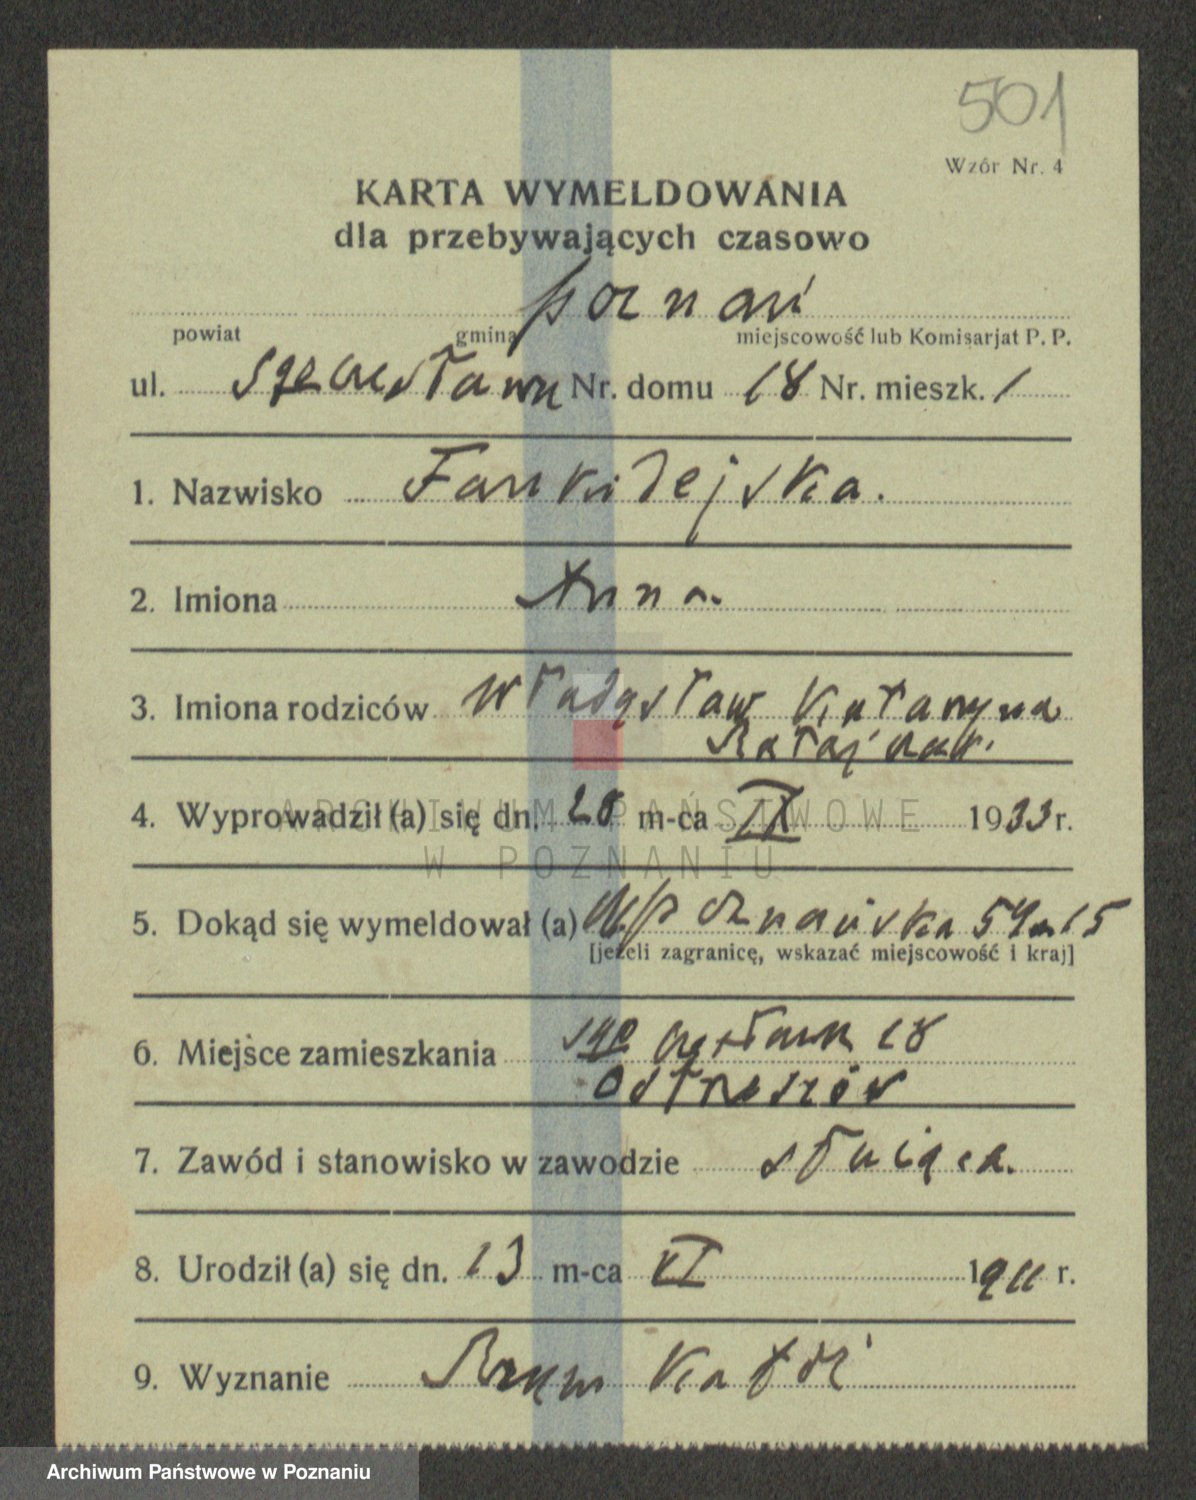 501
Wzór Nr. 4
KARTA WYMELDOWANIA
dla przebywających czasowo
Poznań
powiat gmina miejscowość lub Komisarjat P. P.
ul. Nr. domu 18 Nr. mieszk. 1
1. Nazwisko Fankidejska.
2. Imiona Anna
3. Imiona rodziców Władysław Katarzyna
Ratajczak
4. Wyprowadził (a) się dn. 28 m-ca IX 1933 r.
ARCHIWUM PAŃSTWOWE
W POZNANIU
5. Dokąd się wymeldował (a) Poznańska 59 m 15
[jeżeli zagranicę, wskazać miejscowość i kraj]
6. Miejsce zamieszkania 18
Ostrzeszów
7. Zawód i stanowisko w zawodzie służąca.
8. Urodził (a) się dn. 13 m-ca VI 1911 r.
9. Wyznanie Rzym Kat
Archiwum Państwowe w Poznaniu